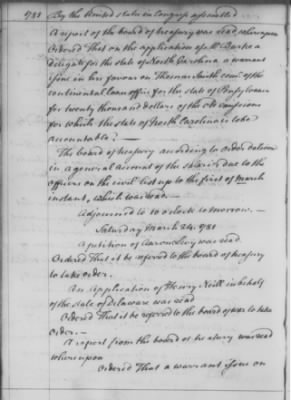 1781 By the United States in Congress assembled
A report of the board of treasury was read whereupon
Ordered That on the application of Mr Burke a
delegate for the state of North Carolina a warrant
issue in his favour on Thomas Smith comr. of the
continental loan office for the state of Pensylvania
for twenty thousand dollars of the old emissions
for which the state of North Carolina is to be
accountable. —
The board of treasury according to Order deliver
in a general account of the salaries due to the
officers on the civil list up to the first of March
instant, which was read. —
Adjourned to 10 o'clock to morrow. —
Saturday March 24. 1781
A petition of Aaron Levy was read
Ordered That it be referred to the board of treasury
to take order.
An Application of Henry Neill in behalf
of the state of Delaware was read
Ordered That it be referred to the board of war to take
order. —
A report from the board of treasury was read
whereupon
Ordered That a warrant issue on